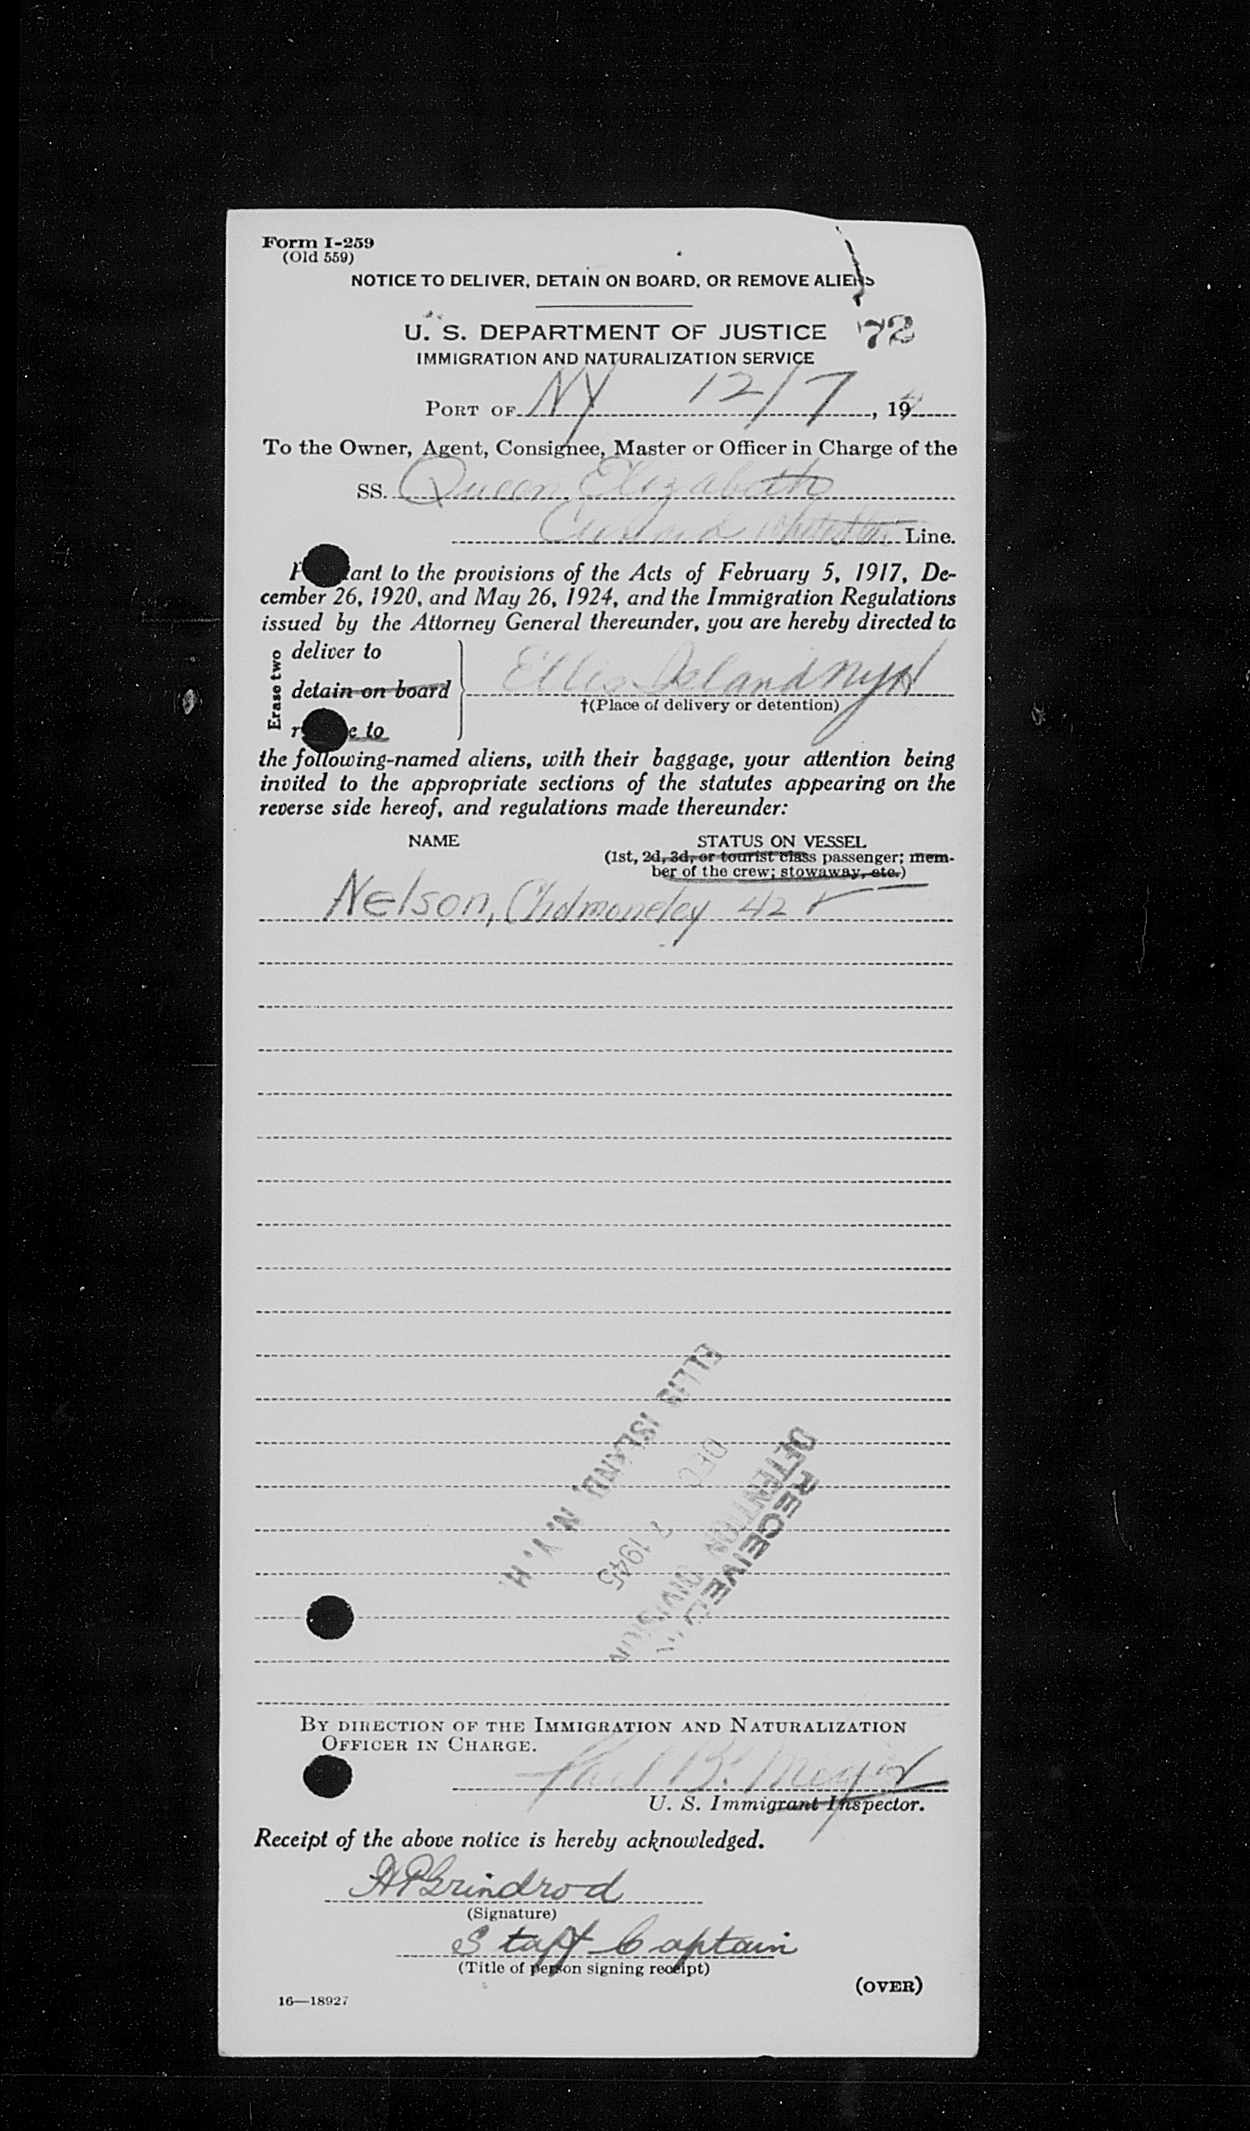 Form I-259
(Old 559)
NOTICE TO DELIVER, DETAIN ON BOARD, OR REMOVE ALIENS
U. S. DEPARTMENT OF JUSTICE
72
IMMIGRATION AND NATURALIZATION SERVICE
PORT OF NY 12/7, 194
To the Owner, Agent, Consignee, Master or Officer in Charge of the
SS. Queen Elizabeth
Cunard White Star Line.
ant to the provisions of the Acts of February 5, 1917, De-
cember 26, 1920, and May 26, 1924, and the Immigration Regulations
issued by the Attorney General thereunder, you are hereby directed to
Erase two
deliver to
detain on board
Ellis Island NYH
†(Place of delivery or detention)
r e to
the following-named aliens, with their baggage, your attention being
invited to the appropriate sections of the statutes appearing on the
reverse side hereof, and regulations made thereunder:
NAME STATUS ON VESSEL
(1st, 2d, 3d, or tourist class passenger; mem-
ber of the crew; stowaway, etc.)
Nelson, Cholmoneley 42 ✓
RECEIVED
DETENTION DIVISION
DEC 7 1945
ELLIS ISLAND, N. Y. H.
BY DIRECTION OF THE IMMIGRATION AND NATURALIZATION
OFFICER IN CHARGE.
Paul B. Meyer
U. S. Immigrant Inspector.
Receipt of the above notice is hereby acknowledged.
HPGrindrod
(Signature)
Staff Captain
(Title of person signing receipt)
(OVER)
16—18927